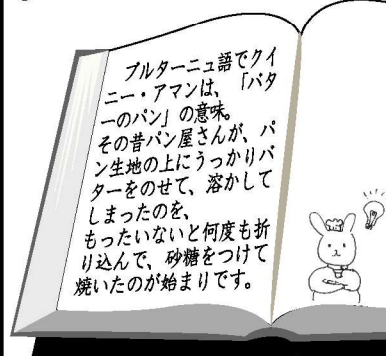 ブルターニュ語でクイ
ニー・アマンは、「バタ
ーのパン」の意味。
その昔パン屋さんが、パ
ン生地の上にうっかりバ
ターをのせて、溶かして
しまったのを、
もったいないと何度も折
り込んで、砂糖をつけて
焼いたのが始まりです。